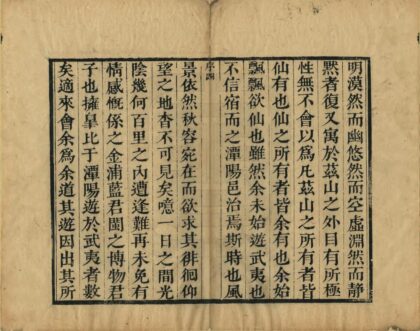 明漠然而幽悠然而空虛淵然而靜
默者復又寓於茲山之外目有所極
性無不會以爲凡茲山之所有者皆
仙有也仙之所有者皆余有也余始
飄飄欲仙也雖然余未始遊武夷也
不信宿而之潭陽邑治焉斯時也風
序
景依然秋容宛在而欲求其徘徊仰
望之地杳不可見矣噫一日之間光
陰幾何百里之內遭逢難再未免有
情感慨係之金浦藍君閩之博物君
子也擁皐比于潭陽遊於武夷者數
矣適來會余爲余道其遊因出其所